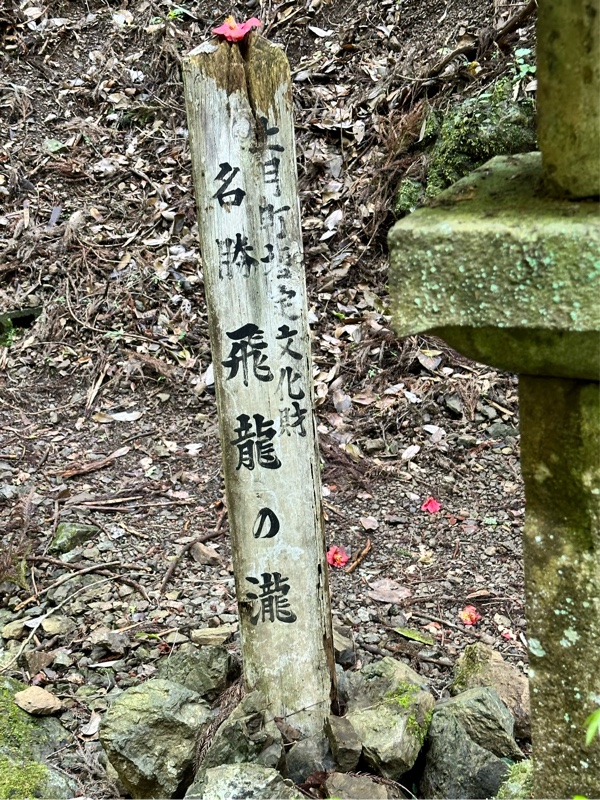 上月町指定文化財
名勝 飛龍の瀧